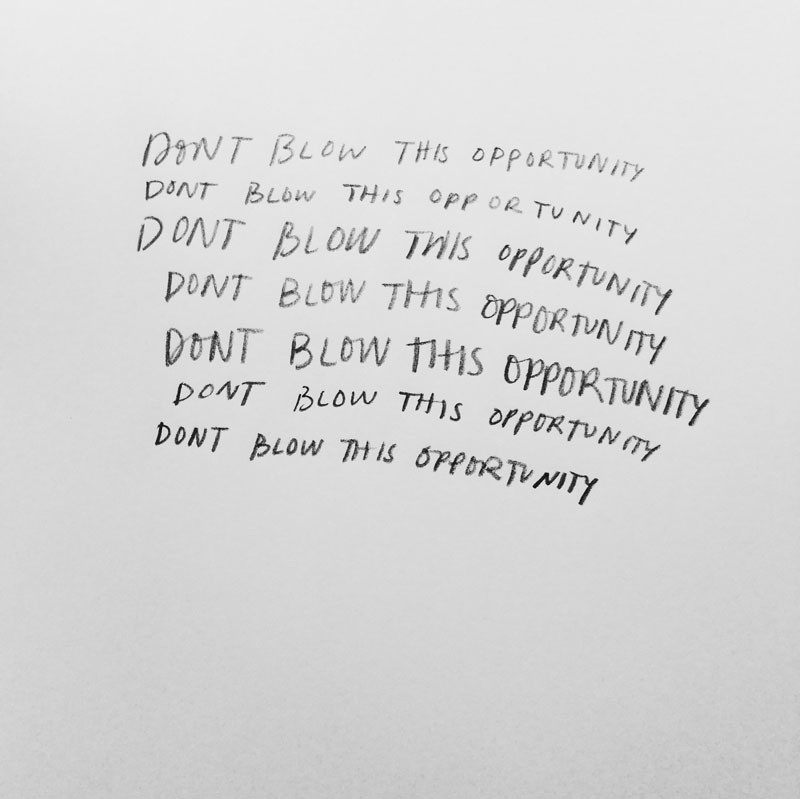 DONT BLOW THIS OPPORTUNITY
DONT BLOW THIS OPPORTUNITY
DONT BLOW THIS OPPORTUNITY
DONT BLOW THIS OPPORTUNITY
DONT BLOW THIS OPPORTUNITY
DONT BLOW THIS OPPORTUNITY
DONT BLOW THIS OPPORTUNITY